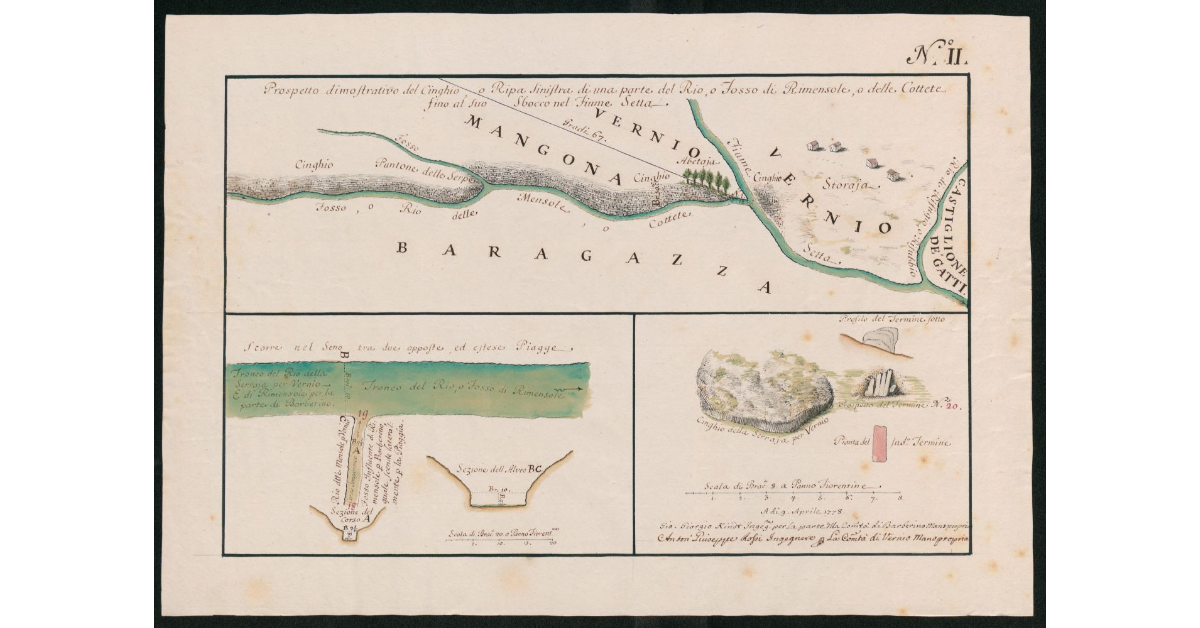 N.º II.
Prospetto dimostrativo del Cinghio, o Ripa Sinistra di una parte del Rio, o Fosso di Rimensole, o delle Cottete
fino al suo Sbocco nel Fiume Setta.
VERNIO
MANGONA
Gradi 67.
Fosso
Abetaja
Fiume
Cinghio
Puntone delle Serpe
Cinghio
Cinghio
VERNIO
Storaja
CASTIGLIONE
DE GATTI.
Fosso, o Rio delle Mensole, o Cottete
Setta
BARAGAZZA
Scorre nel Seno tra due opposte, ed estese Piagge.
B
Tronco del Rio della
Serraja per Vernio
E di Rimensole per la
parte di Barberino.
Tronco del Rio, o Fosso di Rimensole
C
19
18
Sezione del
Corso A
Sezione dell'Alveo BC
B. 10.
Scala di 20 a Panno Fiorent.
Profilo del Termine sotto
Cinghio della Serraja per Vernio
Prospetto del Termine N.º 20.
Pianta del sud.º Termine
Scala di Brac.ª 8 a Panno Fiorentine.
1. 2. 3. 4. 5. 6. 7. 8.
A di 9. Aprile 1778.
Gio. Giorgio Ingeg.e per la parte della Comtà di Barberino Manopropria
Giuseppe Ingegnere p. La Comtà di Vernio Manopropria